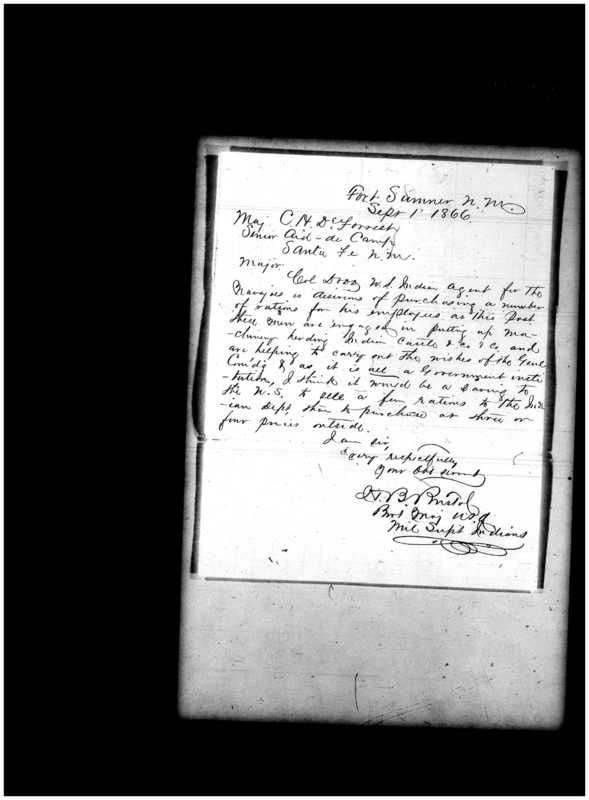 Fort Sumner N.M.
Sept 1st 1866
Maj C. H. De Forrest
Senior Aid-de Camp
Santa Fe N.M.
Major
Col Dodd U.S. Indian Agent for the
Navajoes is desirous of purchasing a number
of rations for his employees at this Post
these men are engaged in putting up ma-
-chinery herding Indian Cattle &c &c &c and
are helping to carry out the wishes of the Genl
Com'd'g & as it is all a Government insti
-tution, I think it would be a saving to
the U.S. to sell a few rations to the Ind
-ian Dept. than to purchase at three or
four prices outside.
I am sir,
Very respectfully
Your Obt servant
H. B. Bristol
Bvt Maj U.S.A
Mil Supt Indians